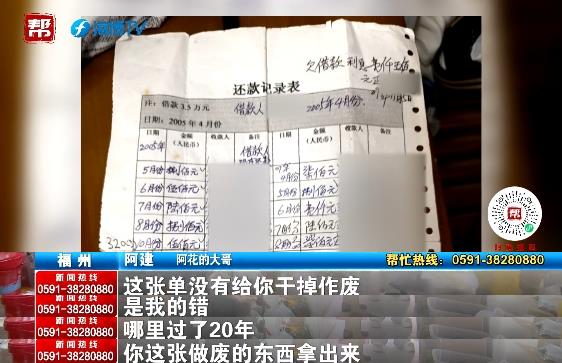 帮
海博TV
欠借款利息壹仟五佰
元正
还款记录表
注：借款3.5万元 借款人 2005年4月份
日期：2005年4月份
日期 金额(人民币) 收款人 备注 日期 金额(人民币) 收款人 备注
2005年 借款人
5月份 捌佰元 4月份 柒佰元
6月份 伍佰元 5月份 捌佰元
7月份 陆佰元 6月份 壹仟元
8月份 捌佰元 7月份 陆佰元
帮
福州 阿建 阿花的大哥 帮忙热线：0591-38280880
新闻热线
0591-38280880
新闻热线
0591-38280880
新闻热线
0591-38280880
这张单没有给你干掉作废
是我的错
哪里过了20年
你这张做废的东西拿出来